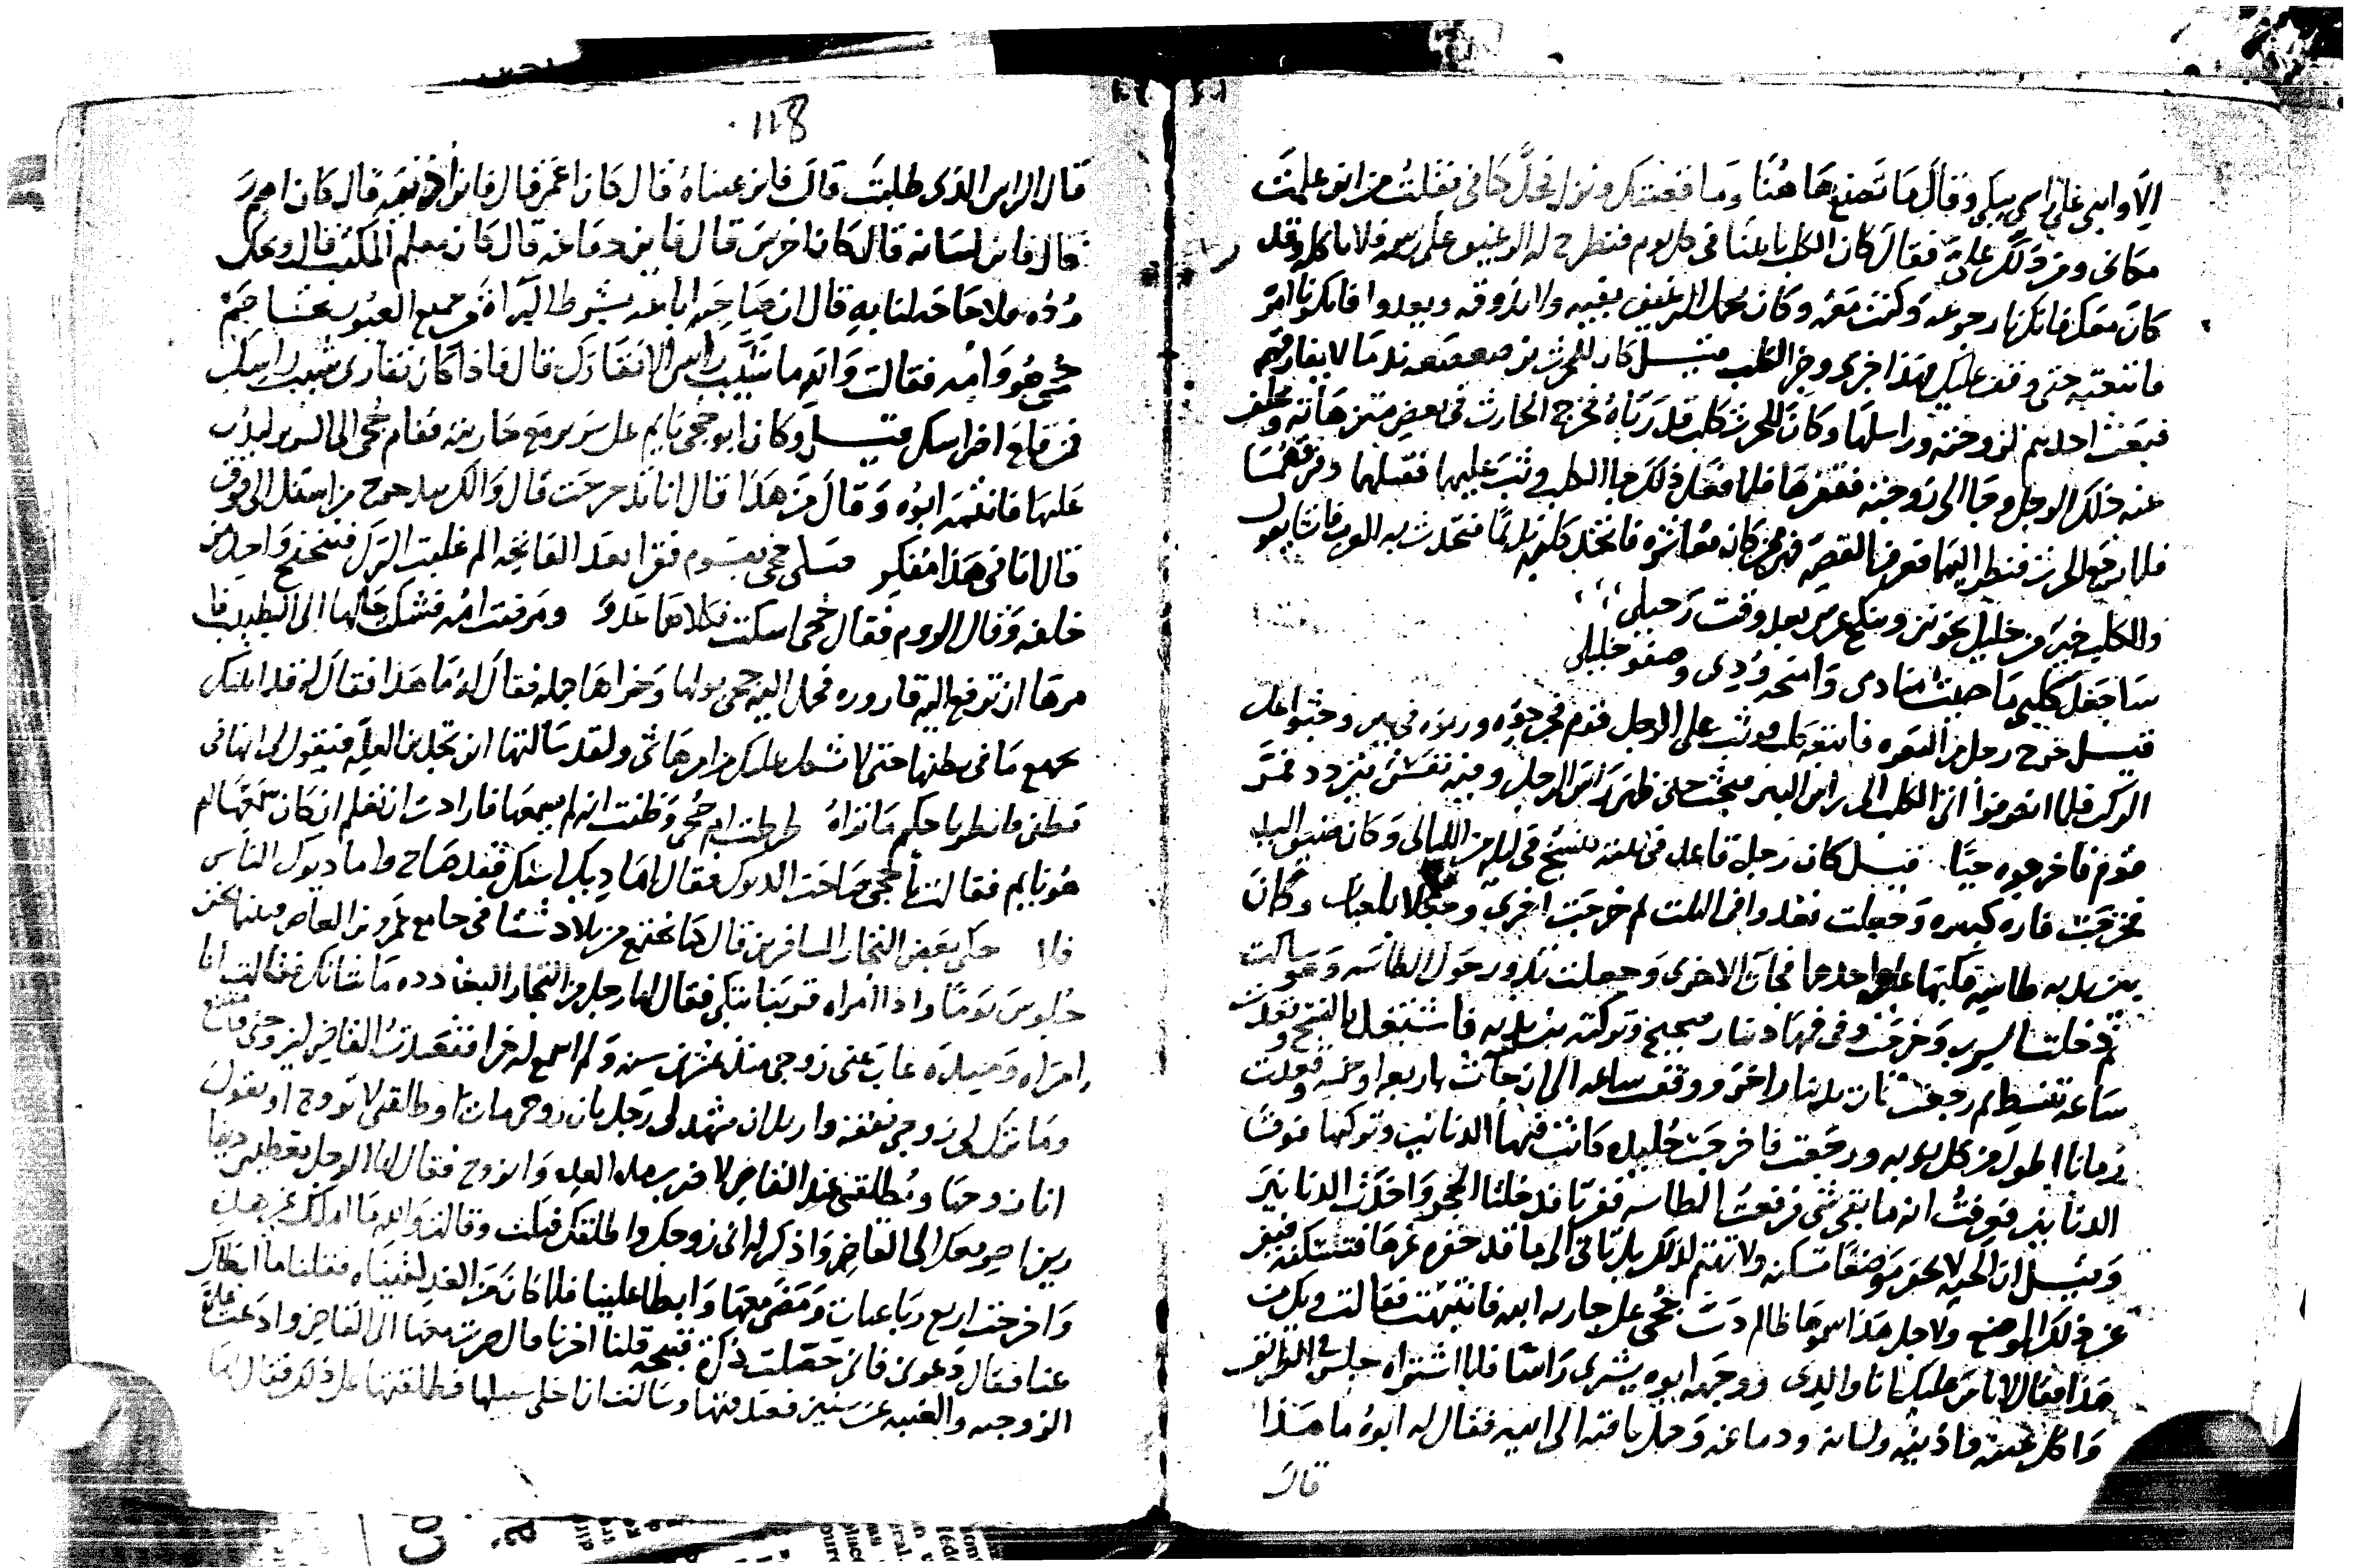 الا وابني على راسي يبكي وقال ما تصنع هاهنا وما قصتك ونزل فحل كتافي فقلت من اين علمت
مكاني ومن دلك علي فقال كان الكلب ياتينا في كل يوم فنطرح له الرغيف على رسمه فلا ياكله وقد
كان معك فانكرنا رجوعه وكنت معه وكان يحمل الرغيف بفيه ولا يذوقه ويعدوا فانكرنا امره
فاتبعته حتى وقف عليك فهذا خبري وخبر الكلب قيل كان للحرث بن صعصعه ندما لا يفارقهم
فبعث احدهم لزوجته وراسلها وكان للحرث كلب قد رباه فخرج الحارث في بعض متنزهاته وتخلف
عنه ذلك الرجل وجا الى زوجته فلما فعل ذلك الكلب وثب عليهما فقتلهما
فلما رجع الحرث فنظر اليهما فعرف القصه فاتخذ كلبه نديما فتحدث به العرب فانشا يقول
والكلب خير من خليل يخونني وينكح عرسي بعد وقت رحيلي
ساجعل كلبي ما حييت منادمي وامنحه ودي وصفو خليلي
قيل خرج رجل من البصره فاتبعه كلب فوثب على الرجل قوم فجرحوه ورموه في بير وحثوا عليه
التراب فلما انصرفوا اتى الكلب الى راس البير فبحث حتى ظهر راس الرجل وفيه نفس يتردد فمر
قوم فاخرجوه حيا قيل كان رجل قاعد في بيته ينسخ في ليله من الليالي وكان ضيق اليد
فخرجت فاره كبيره وجعلت تعدوا في البيت ثم خرجت اخرى وجعلا يلعبان وكان
بين يديه طاسه فكبها على احدهما فجات الاخرى وجعلت تدور حول الطاسه وهو ساكت
ثم دخلت السرب وخرجت وفي فمها دينار صحيح وتركته بين يديه فاشتغل بالنسخ وقعدت
ساعه تنتظر ثم رجعت فاتت بدينار اخر ووقفت ساعه الى ان جات باربعه او خمسه وقعدت
زمانا اطول من كل نوبه ورجعت فاخرجت جليده كانت فيها الدنانير وتركتها فوق
الدنانير فعرفت انه ما بقي شي فرفعت الطاسه ففرتا فدخلتا الجحر واخذت الدنانير
وقيل ان الحيه لا تحفر موضعا تسكنه ولا تهتم لذلك بل تاتي الى ما قد حفره غيرها فتسكنه فيفر
عن ذلك الموضع ولاجل هذا سموها ظالم دب جحى على جاريه ابيه فانتبهت فقالت ويلك من
هذا فقال لا باس عليك انا والدي ووجهه ابوه يشتري راسا فلما اشتراه جلس في الطريق
واكل عينيه واذنيه ولسانه ودماغه وحمل باقيه الى ابيه فقال له ابوه ما هذا
قال
118
قال الراس الذي طلبت قال فاين عيناه قال كان اعمى قال فاين اذنيه قال كان اصم
قال فاين لسانه قال كان اخرس قال فاين دماغه قال كان معلم المكتب قال ويحك
رده بدله قال ان صاحبه اباعه بشرط البراة من جميع العيوب
جحى هو وامه فقالت والله ما شيب راسي الا نقارك قال فاذا كان نقاري شيب راسك
فمن قلع اضراسك قيل وكان ابو جحى نايم على سرير مع جاريته فقام جحى الى السرير ليدب
عليها فانتبه ابوه وقال من هذا
قال انا في هذا مفكر صلى جحى بقوم فقرا بعد الفاتحه الم غلبت الترك فتنحنح واحد من
خلفه وقال الروم فقال جحى اسكت فكلاهما عدو ومرضت امه فشكى حالها الى الطبيب فا
مرها ان ترفع اليه قاروره فحمل اليه جحى بولها وخراها جمله فقال له ما هذا فقال له قد اتيتك
بجميع ما في بطنها حتى لا يشكل عليك من امرها شي ولقد سالتها اين تجدين العله فيقول لي انها في
بطني فانظر يا حكيم ما تراه ظرطت ام جحى وظنت انه لم يسمعها فارادت ان تعلم ان كان سمعها ام
هو نايم فقالت يا جحى صاحت الديوك فقال اما ديك استك فقد صاح واما ديوك الناس
فلا حكى بعض التجار المسافرين قال كنا نجتمع من بلاد شتى في جامع عمرو بن العاص فبينما نحن
جلوس يوما واذا امراه قريبا تبكي فقال لها رجل من التجار البغداده ما شانك فقالت انا
امراه وحيده غاب عني زوجي منذ عشر سنين ولم اسمع له خبرا فقصدت القاضي ليزوجني فامتنع
وما ترك لي زوجي نفقه واريد ان يشهد لي رجل بان زوجي مات او طلقني لاتزوج او يقول
انا زوجها ويطلقني عند القاضي لاصبر هذه العده واتزوج فقال لها الرجل تعطيني دينا
رين اصير معك الى القاضي واذكر له اني زوجك واطلقك فبكت وقالت والله ما املك غير هذه
واخرجت اربع رباعيات ومضى معها وابطا علينا فلما كان من الغد لقيناه فقلنا ما ابطاك
عنا فقال دعوني فاني حصلت في ذكره قبيحه قلنا اخبرنا قال صرت معها الى القاضي وادعت علي
الزوجيه والغيبه عشر سنين فصدقتها وسالت ان اخلي سبيلها فطلقتها على ذلك فقال لها